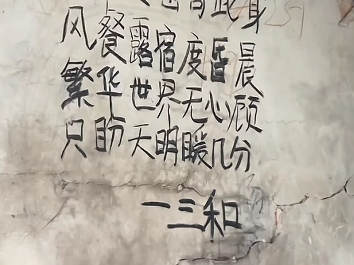 风餐露宿度昏晨
繁华世界无心顾
只盼天明暖几分
一三和